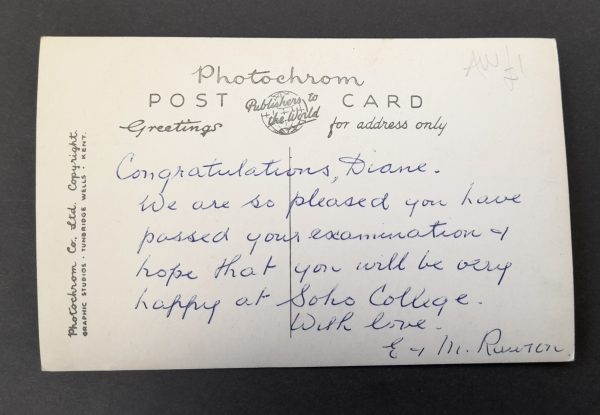 Photochrom
POST CARD
Publishers to
the World
Greetings
for address only
Photochrom Co. Ltd. Copyright.
GRAPHIC STUDIOS · TUNBRIDGE WELLS · KENT.
Congratulations, Diane.
We are so pleased you have
passed your examination &
hope that you will be very
happy at Soho College.
With love.
E & M.